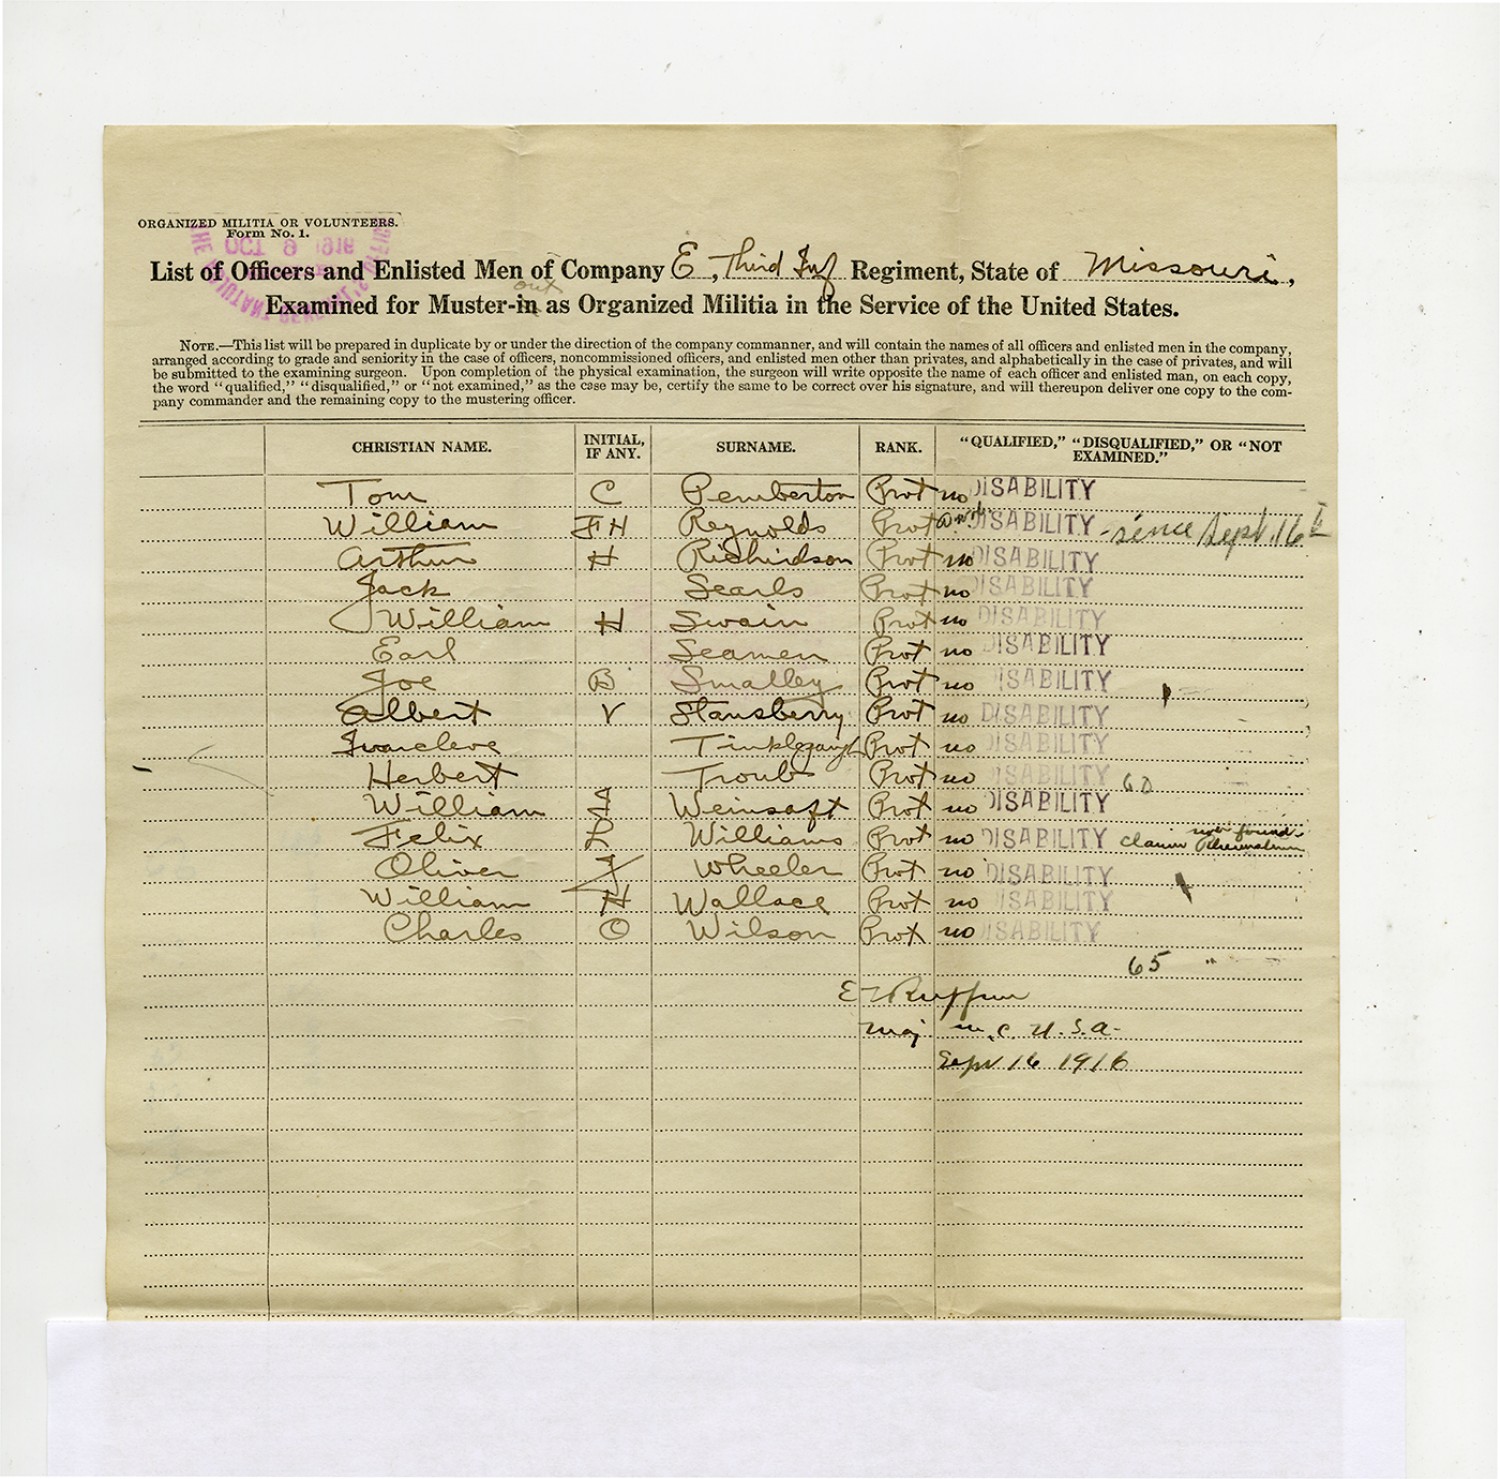 ORGANIZED MILITIA OR VOLUNTEERS.
Form No. 1.
OCT 9 1916
List of Officers and Enlisted Men of Company E, Third Inf Regiment, State of Missouri,
out
Examined for Muster-in as Organized Militia in the Service of the United States.
NOTE.—This list will be prepared in duplicate by or under the direction of the company commanner, and will contain the names of all officers and enlisted men in the company,
arranged according to grade and seniority in the case of officers, noncommissioned officers, and enlisted men other than privates, and alphabetically in the case of privates, and will
be submitted to the examining surgeon. Upon completion of the physical examination, the surgeon will write opposite the name of each officer and enlisted man, on each copy,
the word "qualified," "disqualified," or "not examined," as the case may be, certify the same to be correct over his signature, and will thereupon deliver one copy to the com-
pany commander and the remaining copy to the mustering officer.
CHRISTIAN NAME. INITIAL, IF ANY. SURNAME. RANK. "QUALIFIED," "DISQUALIFIED," OR "NOT EXAMINED."
Tom C Pemberton Prvt no DISABILITY
William FH Reynolds Prvt DISABILITY - since Sept. 16th
Arthur H Richirdson Prvt no DISABILITY
Jack Searls Prvt no DISABILITY
William H Swain Prvt no DISABILITY
Earl Seamen Prvt no DISABILITY
Joe B Smalley Prvt no DISABILITY
Albert V Stansberry Prvt no DISABILITY
Prvt no DISABILITY
Herbert Troub Prvt no DISABILITY 60
William J Weinsaft Prvt no DISABILITY
Felix L Williams Prvt no DISABILITY claim Rheumatism not found
Oliver J Wheeler Prvt no DISABILITY
William H Wallace Prvt no DISABILITY
Charles O Wilson Prvt no DISABILITY
65 "
E Ruffner
Maj M.C. U.S.A.
Sept 16 1916